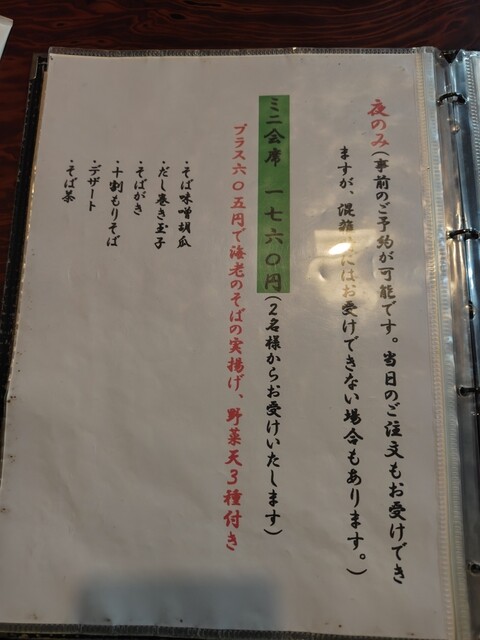 夜のみ(事前のご予約が可能です。当日のご注文もお受けでき
ますが、混雑 にはお受けできない場合もあります。)
ミニ会席 一七六〇円(2名様からお受けいたします)
プラス六〇五円で海老のそばの実揚げ、野菜天3種付き
・そば味噌胡瓜
・だし巻き玉子
・そばがき
・十割もりそば
・デザート
・そば茶